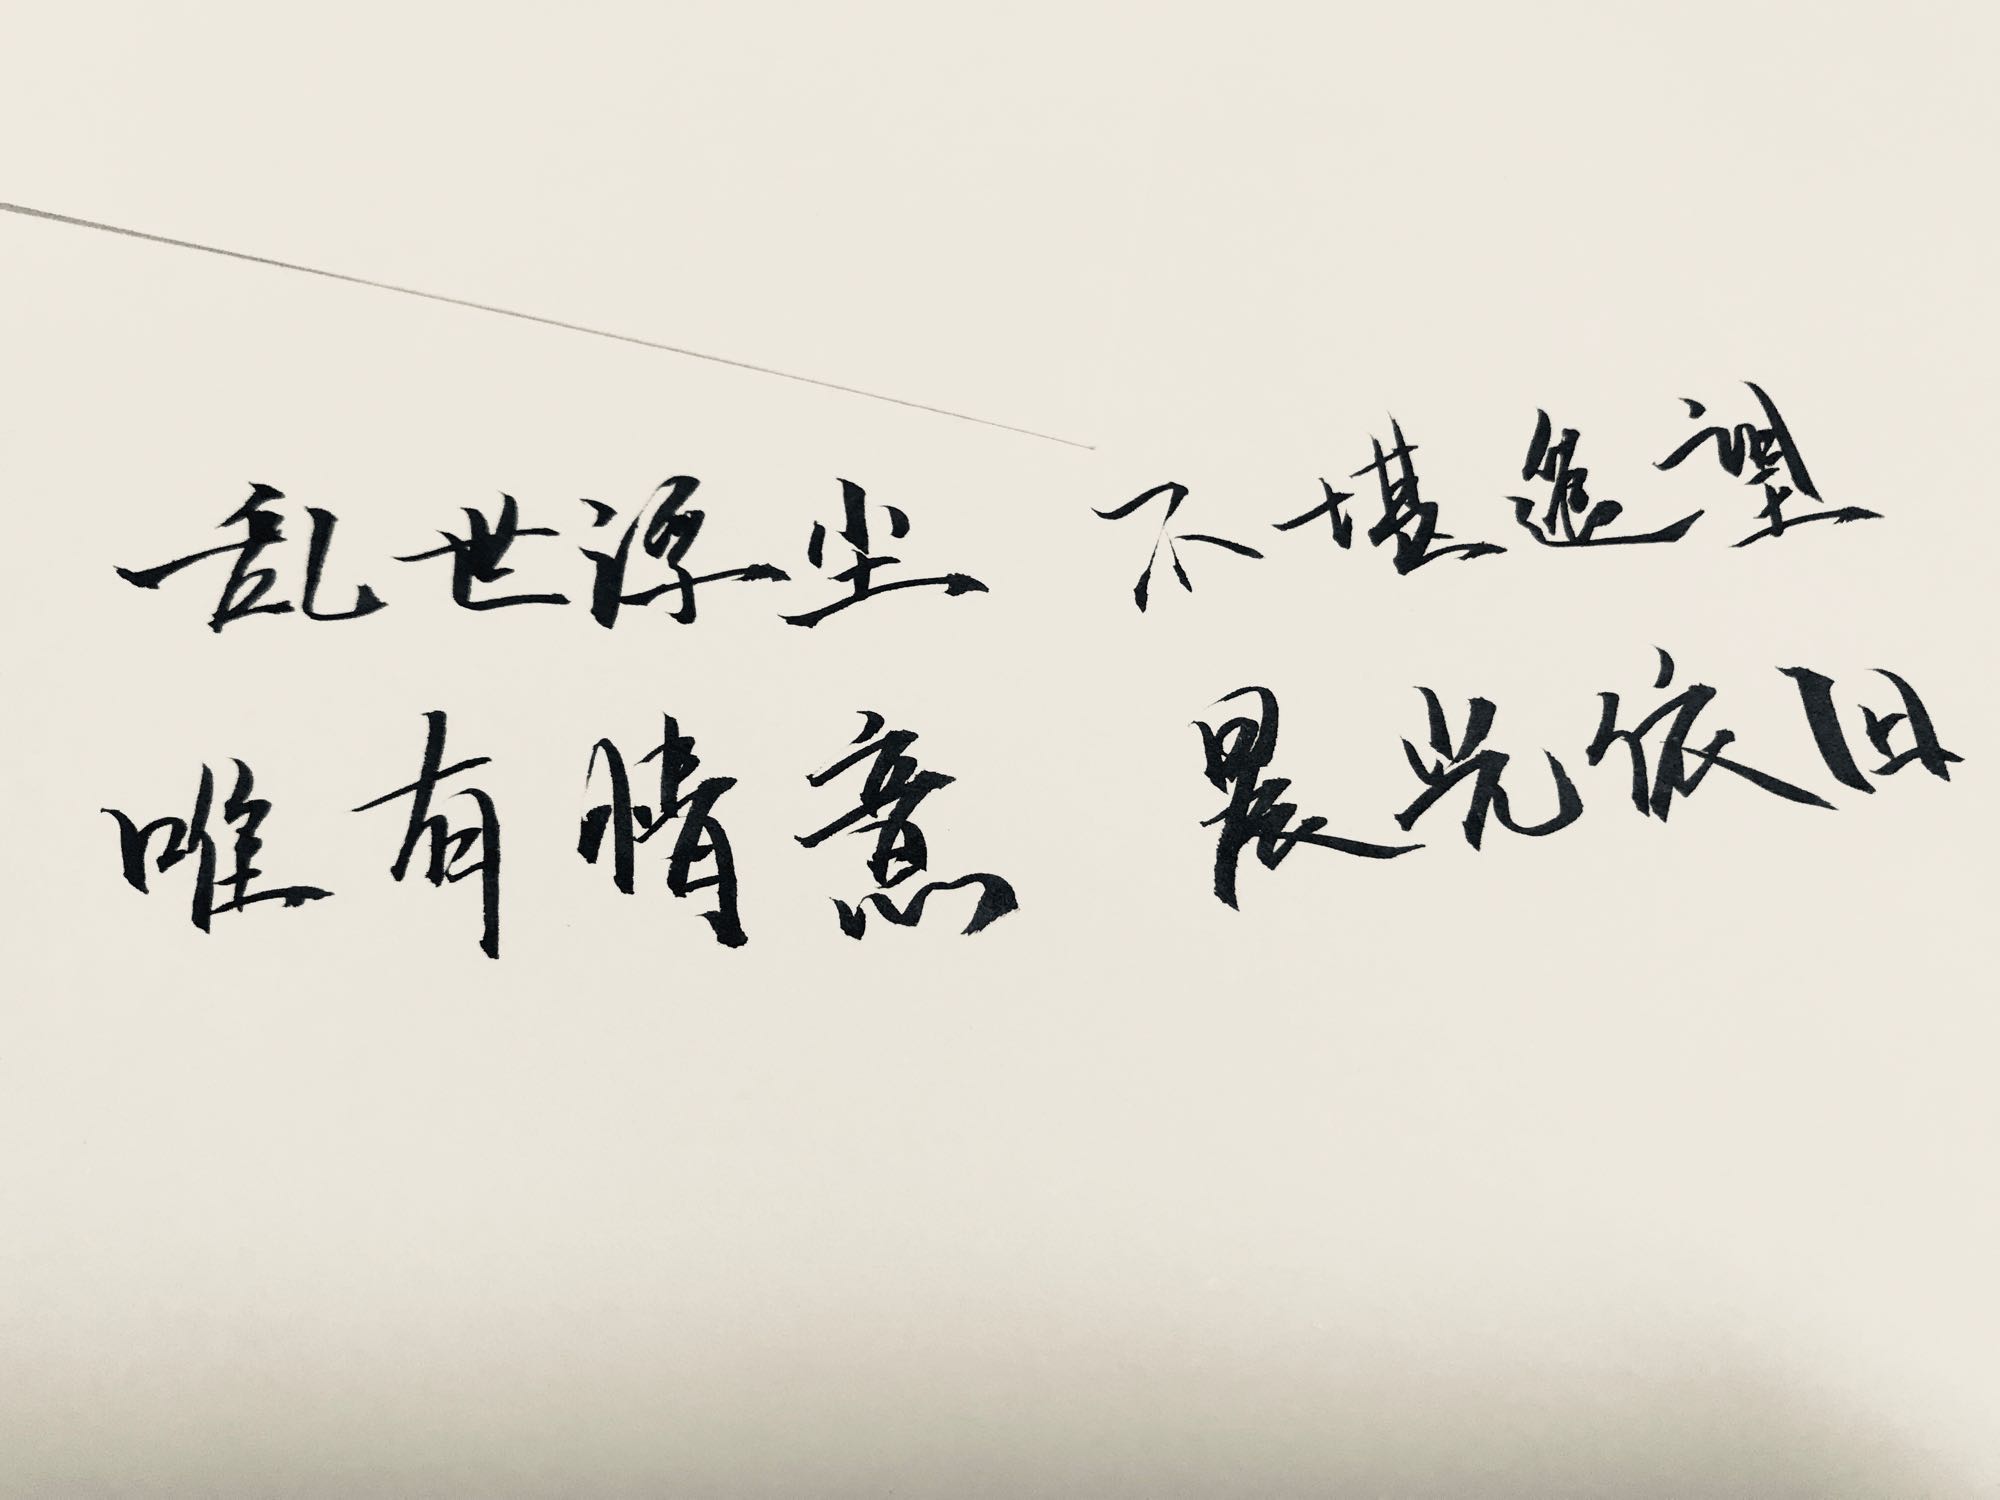 乱世浮尘 不堪追望
唯有情意 晨光依旧